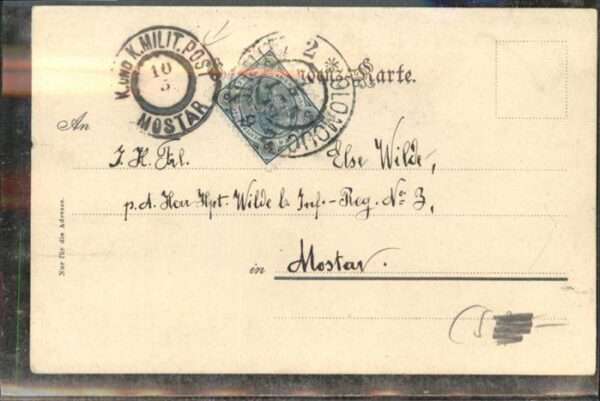 K. UND K. MILIT. POST
10
5
MOSTAR
Karte.
2
An
Else Wilde,
p. A. Herr Hpt. Wilde b. Inf.-Reg. No 3,
in Mostar.
Nur für die Adresse.